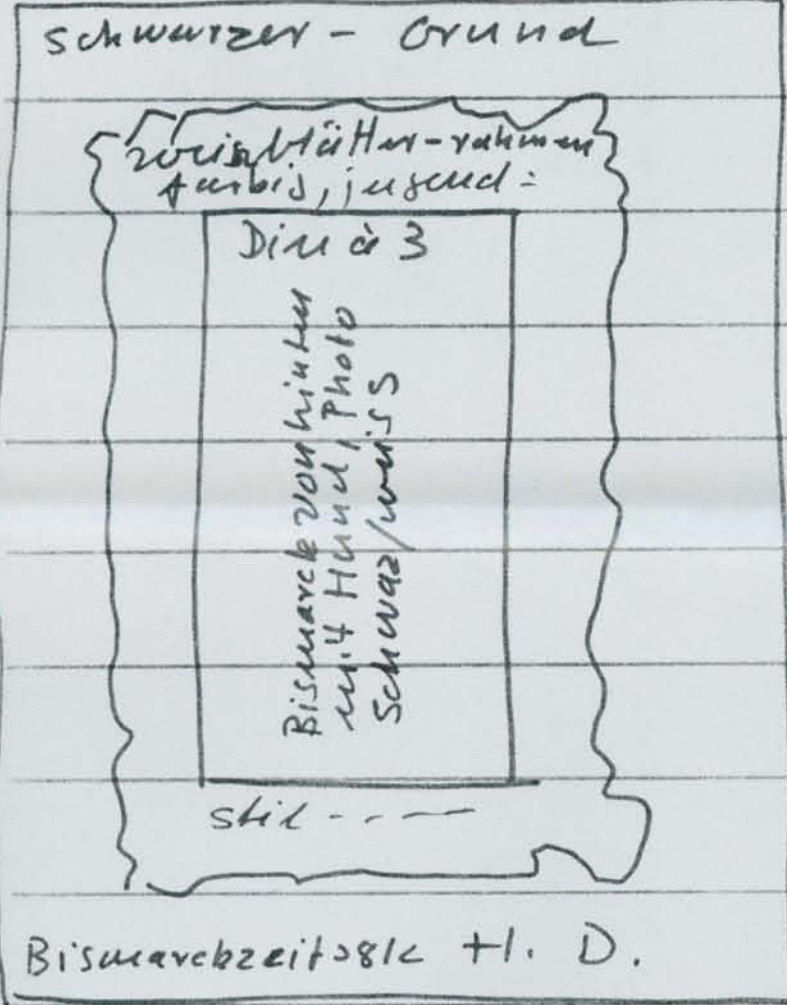 schwarzer - Grund
weinblätter-rahmen
farbig, jugend =
Din à 3
Bismarck von hinten
mit Hund, Photo
Schwaz/weiss
stil - - - -
Bismarckzeit H. D.